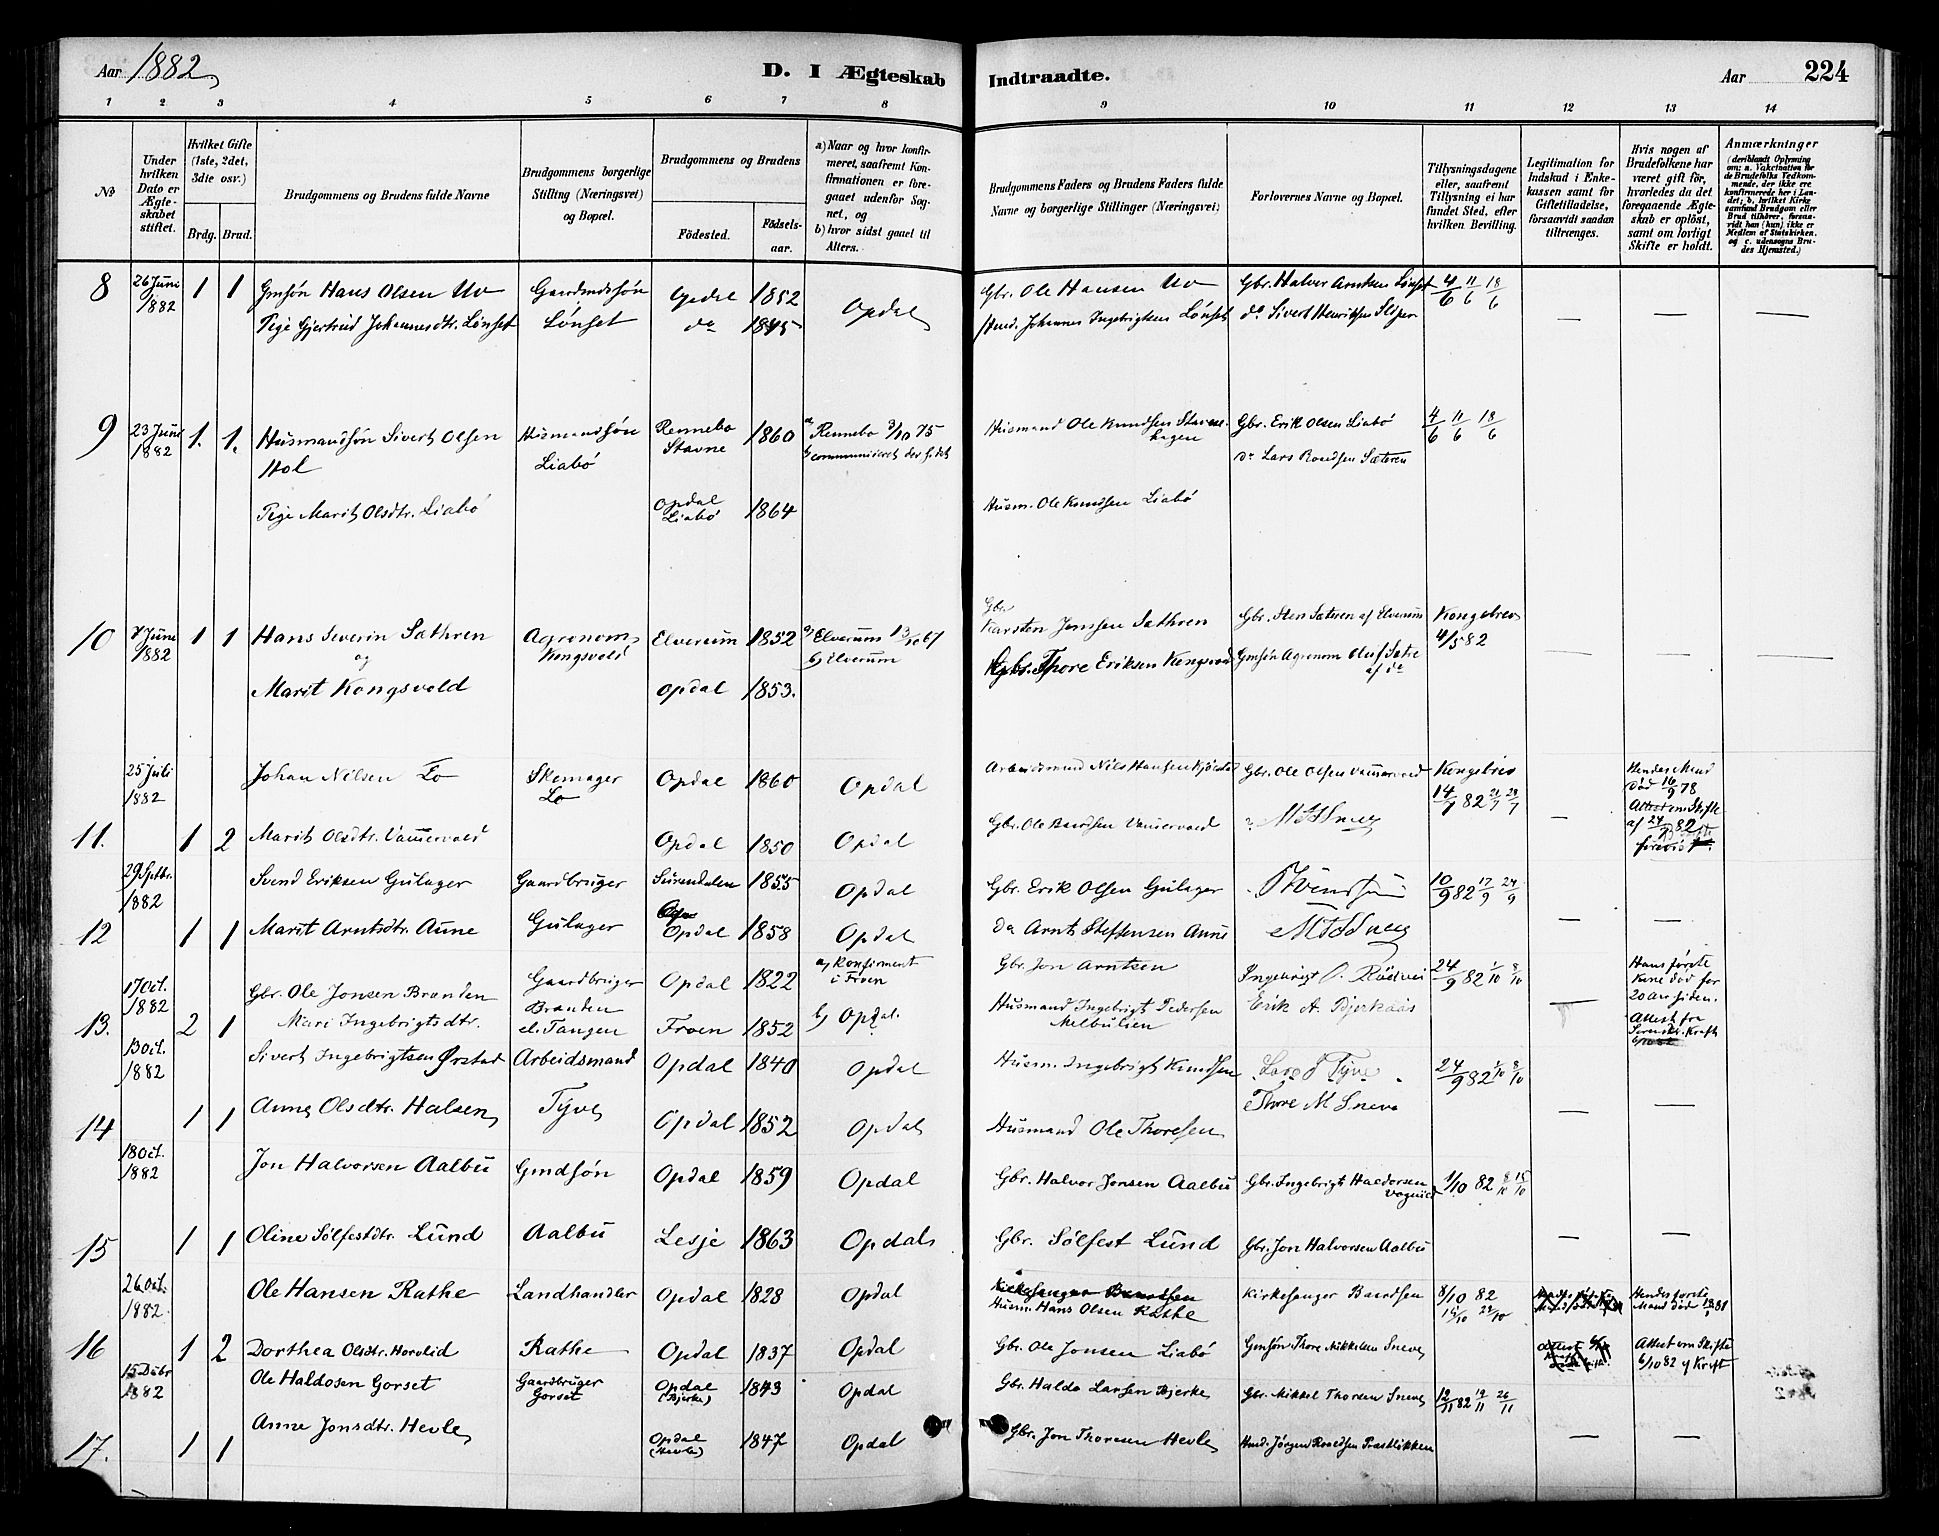 Aar 1882
D. I Ægteskab Indtraadte.
Aar 224
1 2 3 4 5 6 7 8 9 10 11 12 13 14
No
Under hvilken Dato er Ægteskabet stiftet.
Hvilket Gifte (1ste, 2det, 3die osv.)
Brdg. Brud.
Brudgommens og Brudens fulde Navne
Brudgommens borgerlige Stilling (Næringsvei) og Bopæl.
Brudgommens og Brudens
Fødested. Fødselsaar.
a) Naar og hvor konfirmeret, saafremt Konfirmationen er foregaaet udenfor Sognet, og
b) hvor sidst gaaet til Alters.
Brudgommens Faders og Brudens Faders fulde Navne og borgerlige Stillinger (Næringsvei)
Forlovernes Navne og Bopæl.
Tillysningsdagene eller, saafremt Tillysning ei har fundet Sted, efter hvilken Bevilling.
Legitimation for Indskud i Enkekassen samt for Giftetilladelse, forsaavidt saadan tiltrænges.
Hvis nogen af Brudefolkene har været gift før, hvorledes da det foregaaende Ægteskab er opløst, samt om lovligt Skifte er holdt.
Anmærkninger
(deriblandt Oplysning om: a. Vakcination for de Brudefolks Vedkommende, der ikke ere konfirmerede her i Landet; b. hvilket Kirkesamfund Brudgom eller Brud tilhører, forsaavidt han (hun) ikke er Medlem af Statskirken, og c. udensogns Brudes Hjemsted.)
8 26 Juni 1882 1 1 Gmsøn Hans Olsen Uv Gaardmdsøn Opdal 1852 Opdal Gbr. Ole Hansen Uv Gbr. Halvor Arntsen Lønset 4/6 11/6 18/6
Pige Gjertrud Johannesdtr. Lønset Lønset do 1845 Johannes Ingebrigtsen Lønset do Sivert Henriksen Sliper — —
9 23 Juni 1882 1. 1. Husmandsøn Sivert Olsen Husmandsøn Rennebo 1860 a Rennebo 3/10 75 Husmand Ole Knudsen Stavne- Gbr. Erik Olsen Liabø 4/6 11/6 18/6
Hol Liabø Stavne b communiceret der s. st. hagen do Lars Roaldsen Sæteren
Pige Marit Olsdtr. Liabø Opdal Liabø 1864 Husm. Ole Knudsen Liabø
10 7 Juni 1882 1 1 Hans Severin Sæthren Agronom Elverum 1852 a) Elverum 13/10 67 Gbr. Karsten Jensen Sæthren Gbr. Sten Sætren af Elverum Kongebrev
og Kongsvold b) Elverum 4/5 82
Marit Kongsvold Opdal 1853. Gbr. Thore Eriksen Kongsvold Gmsøn Agronom Oluf Sætre af do — — —
25 Juli 1882 Johan Nilsen Lo Skomager Lo Opdal 1860 Opdal Arbeidsmand Nils Hansen Gbr. Ole Olsen Vammervold Kongebrev 14/7 82 21/7 28/7 Hendes Mand død 16/9 78
11. 1 2 Marit Olsdtr. Vammervold Opdal 1850 Opdal Gbr. Ole Baardsen Vammervold — Attest om Skifte af 24/7 82
29 Septbr. 1882 Svend Eriksen Gulager Gaardbruger Surendalen 1855 Opdal Gbr. Erik Olsen Gulager 10/9 82 17/9 24/9
12 1 1 Marit Arntsdtr. Aune Gulager Opdal 1858 Opdal do Arnt Steffensen Aune — —
17 Oct. 1882 Gbr. Ole Jonsen Branden Gaardbruger Opdal 1822 a) Konfirment i Froen Gbr. Jon Arntsen Ingebrigt O. 24/9 82 1/10 8/10 Hans første Kone død for 20 Aar siden.
13. 2 1 Mari Ingebrigtsdtr. Branden el. Tangen Froen 1852 b) Opdal. Husmand Ingebrigt Pedersen Melbulien Erik A. Bjerkaas — Attest fra
13 Oct. 1882 Sivert Ingebrigtsen Ørstad Arbeidsmand Opdal 1840 Opdal Husm. Ingebrigt Knudsen Lars J Tyve 24/9 82 1/10 8/10
14 1 1 Anne Olsdtr. Halsen Tyve Opdal 1852 Opdal Husmand Ole Thoresen Thore M Sneve — —
18 Oct. 1882 Jon Halvorsen Aalbu Gmdsøn Opdal 1859 Opdal Gbr. Halvor Jonsen Aalbu Gbr. Ingebrigt Haldorsen Vognild 1/10 82 8/10 15/10
15 1 1 Oline Sølfestdtr. Lund Aalbu Lesje 1863 Opdal Gbr. Sølfest Lund Gbr. Jon Halvorsen Aalbu — —
26 Oct. 1882 Ole Hansen Rathe Landhandler Opdal 1828 Opdal Kirkesanger Baardsen Husm. Hans Olsen Rathe Kirkesanger Baardsen 8/10 82 15/10 22/10 Hendes første Mand død
16 1 2 Dorthea Olsdtr. Horvlid Rathe Opdal 1837 Opdal Gbr. Ole Jonsen Liabø Gmsøn Thore Mikkelsen Sneve Attest om Skifte 6/10 82 Kraft
15 Debr 1882 Ole Haldosen Gorset Gaardbruger Gorset Opdal (Bjerke) 1843 Opdal Gbr. Haldo Larsen Bjerke Gbr. Mikkel Thoresen Sneve 12/11 82 19/11 26/11
17. 1 1 Anne Jonsdtr. Hevle Opdal (Hevle) 1847 Opdal Gbr. Jon Thoresen Hevle Jørgen Roaldsen Præstløkken — —